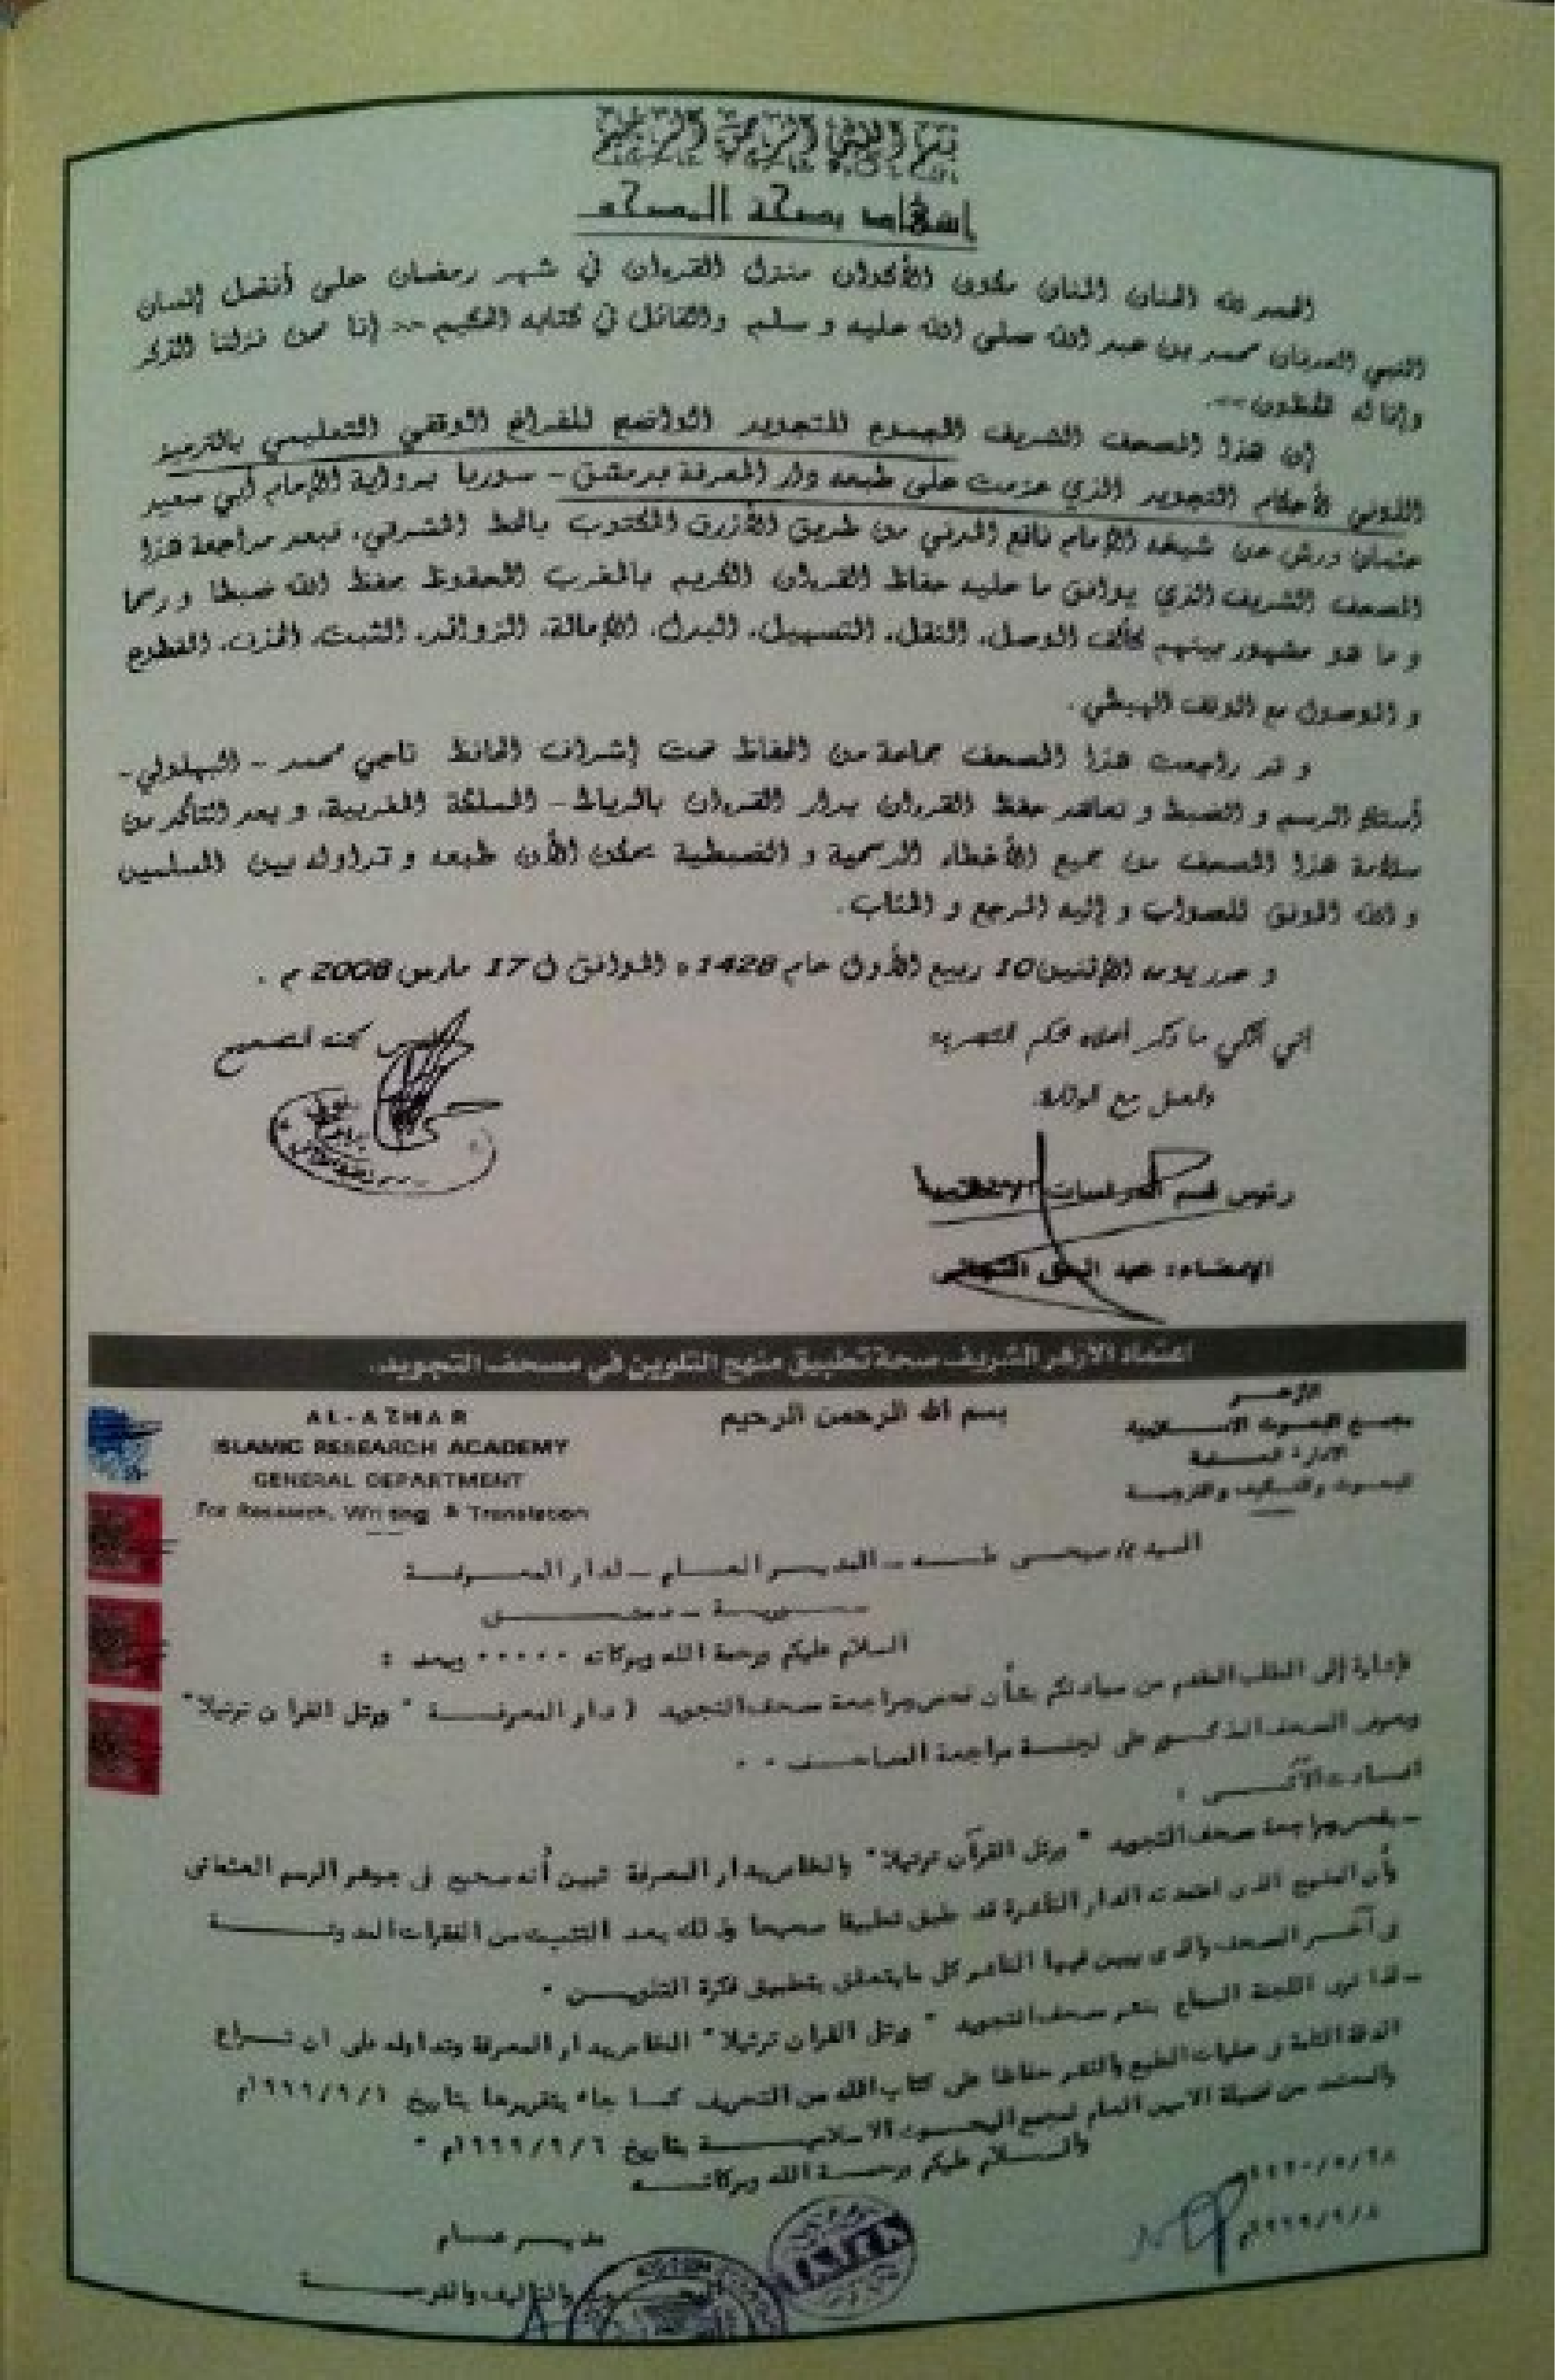 بسم الله الرحمن الرحيم
إشهاد بصحة المصحف
الحمد لله الحنان المنان مكون الأكوان منزل القرءان في شهر رمضان على أفضل إنسان
النبي العدنان محمد بن عبد الله صلى الله عليه و سلم والقائل في كتابه الحكيم << إنا نحن نزلنا الذكر
وإنا له لحفظون >>.
إن هذا المصحف الشريف المجموع للتجويد الواضح للفراغ الوقفي التعليمي بالترميز
اللوني لأحكام التجويد الذي عزمت على طبعه دار المعرفة بدمشق - سوريا برواية الإمام أبي سعيد
عثمان ورش عن شيخه الإمام نافع المدني من طريق الأزرق المكتوب بالخط المشرقي، فبعد مراجعة هذا
المصحف الشريف الذي يوافق ما عليه حفاظ القرءان الكريم بالمغرب المحفوظ بحفظ الله ضبطا و رسما
و ما هو مشهور بينهم كألف الوصل، النقل، التسهيل، البدل، الإمالة، الزوائد، الثبت، الحذف، المقطوع
و الموصول مع الوقف الهبطي.
و قد راجعت هذا المصحف جماعة من الحفاظ تحت إشراف الحافظ ناجي محمد - البهلولي -
أستاذ الرسم و الضبط و تعاهد حفظ القرءان بدار القرءان بالرباط - المملكة المغربية، و بعد التأكد من
سلامة هذا المصحف من جميع الأخطاء الرسمية و الضبطية يمكن الأن طبعه و تداوله بين المسلمين
و الله الموفق للصواب و إليه المرجع و المئاب.
و حرر يومه الإثنين 10 ربيع الأول عام 1428 ه الموافق ل 17 مارس 2008 م .
إني أزكي ما ذكر أعلاه
لجنة التصحيح
والعمل مع
رئيس قسم
الإمضاء: عبد الحق
اعتماد الأزهر الشريف صحة تطبيق منهج التلوين في مصحف التجويد.
الأزهر
مجمع البحوث الاسلامية
الادارة العامة
للبحوث والتأليف والترجمة
بسم الله الرحمن الرحيم
AL-AZHAR
ISLAMIC RESEARCH ACADEMY
GENERAL DEPARTMENT
For Research, Writing & Translation
السيد م/ صبحى طه - المدير العام - لدار المعرفة
سورية - دمشق
السلام عليكم ورحمة الله وبركاته ..... وبعد :
فإشارة إلى الطلب المقدم من سيادتكم بشأن فحص ومراجعة مصحف التجويد ( دار المعرفة " ورتل القرآن ترتيلا"
وبعرض المصحف المذكور على لجنة مراجعة المصاحف . .
افادت الآتى :
- بفحص ومراجعة مصحف التجويد " ورتل القرآن ترتيلا" والخاص بدار المعرفة تبين أنه صحيح فى جوهر الرسم العثمانى
وأن المنهج الذى اعتمدته الدار الناشرة قد طبق تطبيقا صحيحا وذلك بعد التثبت من الفقرات المدونة
فى آخر المصحف والذى يبين فيها الناشر كل مايتعلق بتطبيق فكرة التلوين .
- لذا ترى اللجنة السماح بنشر مصحف التجويد " ورتل القرآن ترتيلا" الخاص بدار المعرفة وتداوله على ان تراعى
الدقة التامة فى عمليات الطبع والنشر حفاظا على كتاب الله من التحريف كما جاء بتقريرها بتاريخ ١٩٩٩/٩/١م
والمعتمد من فضيلة الامين العام لمجمع البحوث الاسلامية بتاريخ ١٩٩٩/٩/٦م .
والسلام عليكم ورحمة الله وبركاته
١٤٢٠/٥/٢٨
١٩٩٩/٩/٨م
مدير عام
البحوث والتأليف والترجمة